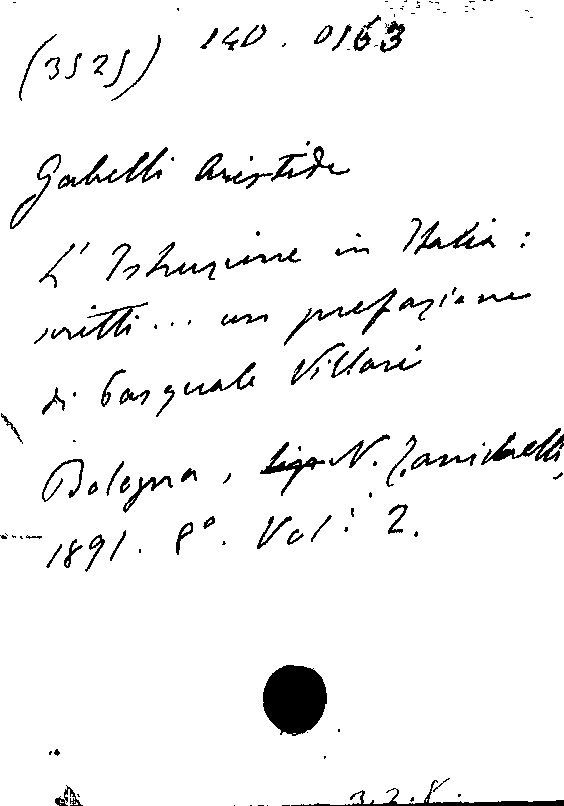 (3525) 140.0163
Gabelli Aristide
L'Istruzione in Italia:
scritti... con prefazione
di Pasquale Villari
Bologna, N. Zanichelli,
1891. 8º. Vol: 2.